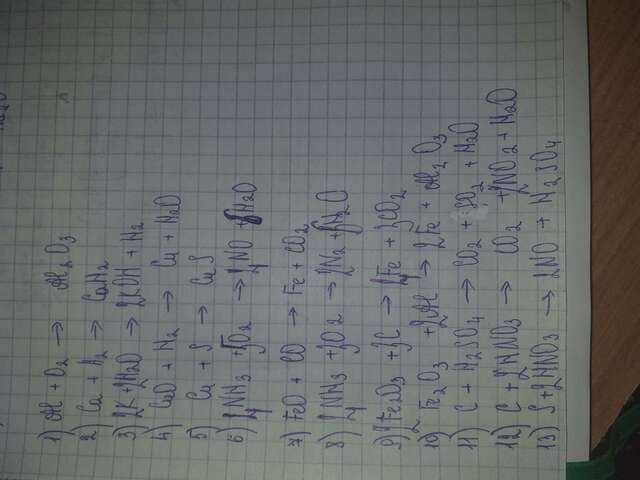 1) Al + O2 → Al2O3
2) Ca + H2 → CaH2
3) 2K + 2H2O → 2KOH + H2
4) CuO + H2 → Cu + H2O
5) Cu + S → CuS
6) 4NH3 + 5O2 → 4NO + 6H2O
7) FeO + CO → Fe + CO2
8) 4NH3 + 3O2 → 2N2 + 6H2O
9) 2Fe2O3 + 3C → 4Fe + 3CO2
10) Fe2O3 + 2Al → 2Fe + Al2O3
11) C + H2SO4 → CO2 + SO2 + H2O
12) C + 2HNO3 → CO2 + 2NO2 + H2O
13) S + 2HNO3 → 2NO + H2SO4